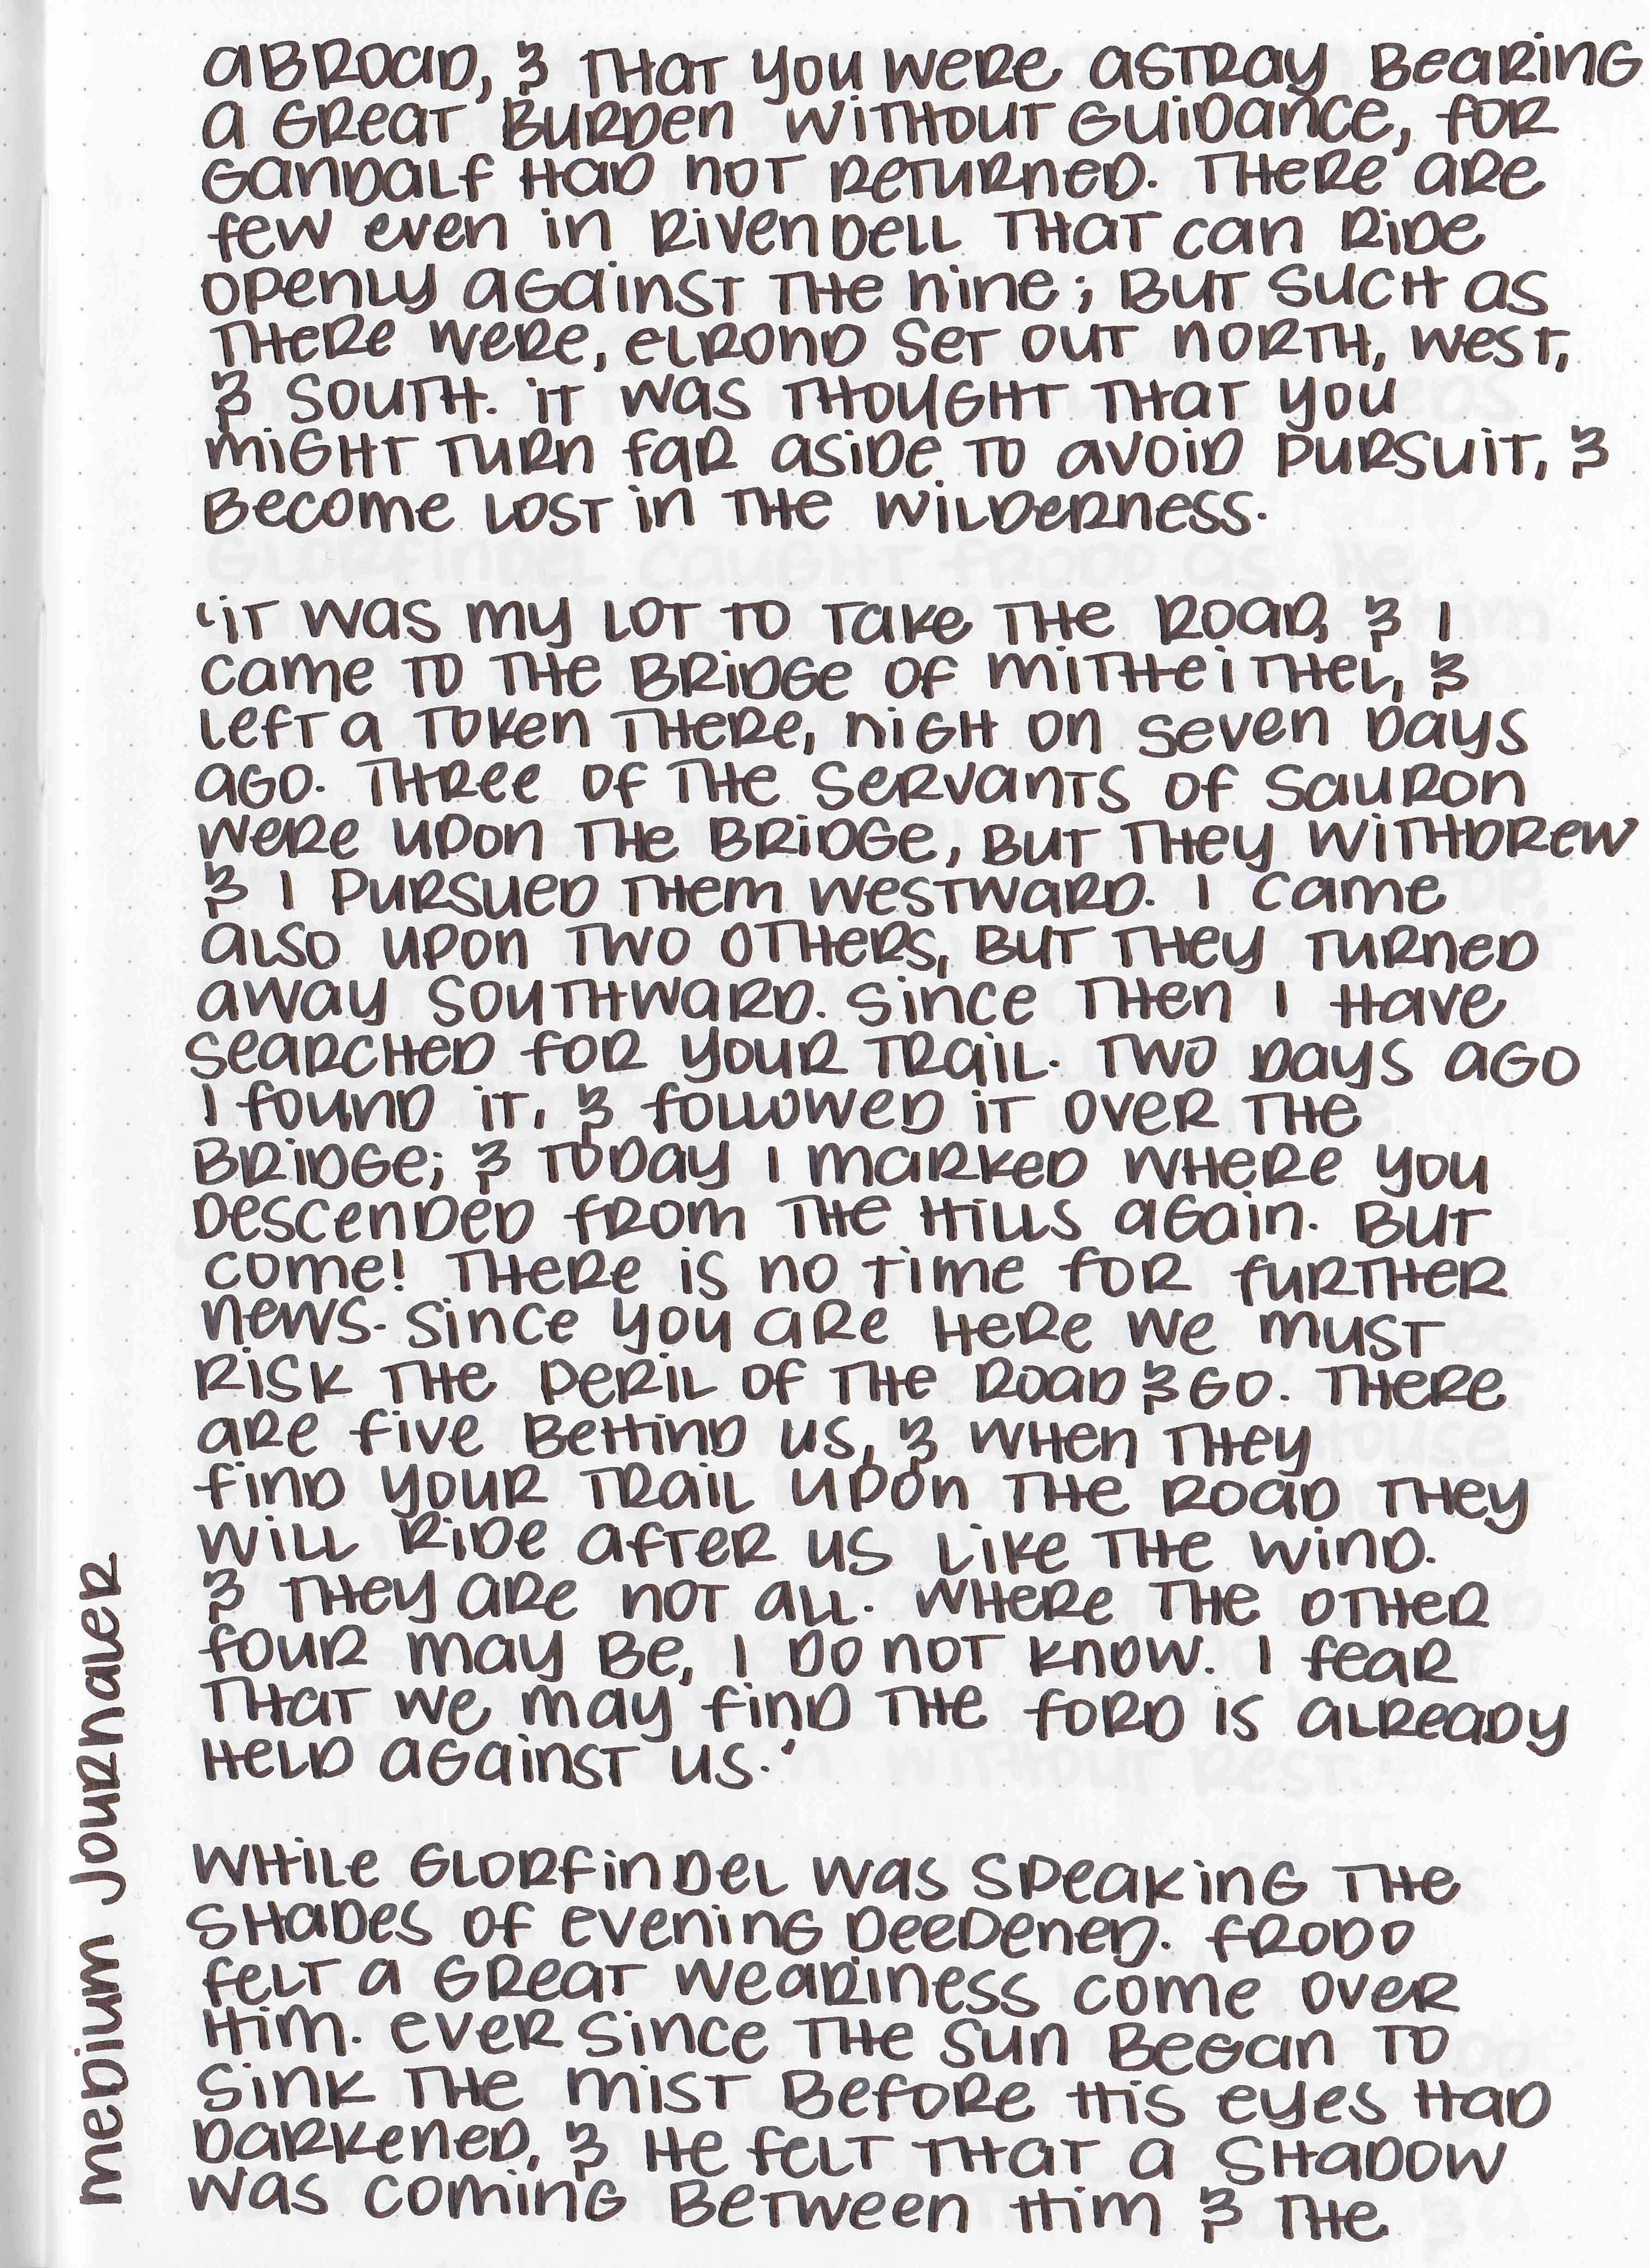 abroad, & that you were astray bearing
a great burden without guidance, for
Gandalf had not returned. There are
few even in Rivendell that can ride
openly against the Nine; but such as
there were, Elrond set out north, west,
& south. It was thought that you
might turn far aside to avoid pursuit, &
become lost in the wilderness.
'It was my lot to take the Road, & I
came to the Bridge of Mitheithel, &
left a token there, nigh on seven days
ago. Three of the servants of Sauron
were upon the Bridge, but they withdrew
& I pursued them westward. I came
also upon two others, but they turned
away southward. Since then I have
searched for your trail. Two days ago
I found it, & followed it over the
Bridge; & today I marked where you
descended from the hills again. But
come! There is no time for further
news. Since you are here we must
risk the peril of the Road & go. There
are five behind us, & when they
find your trail upon the Road they
will ride after us like the wind.
& they are not all. Where the other
four may be, I do not know. I fear
that we may find the Ford is already
held against us.'
While Glorfindel was speaking the
shades of evening deepened. Frodo
felt a great weariness come over
him. Ever since the sun began to
sink the mist before his eyes had
darkened, & he felt that a shadow
was coming between him & the
medium Journaler